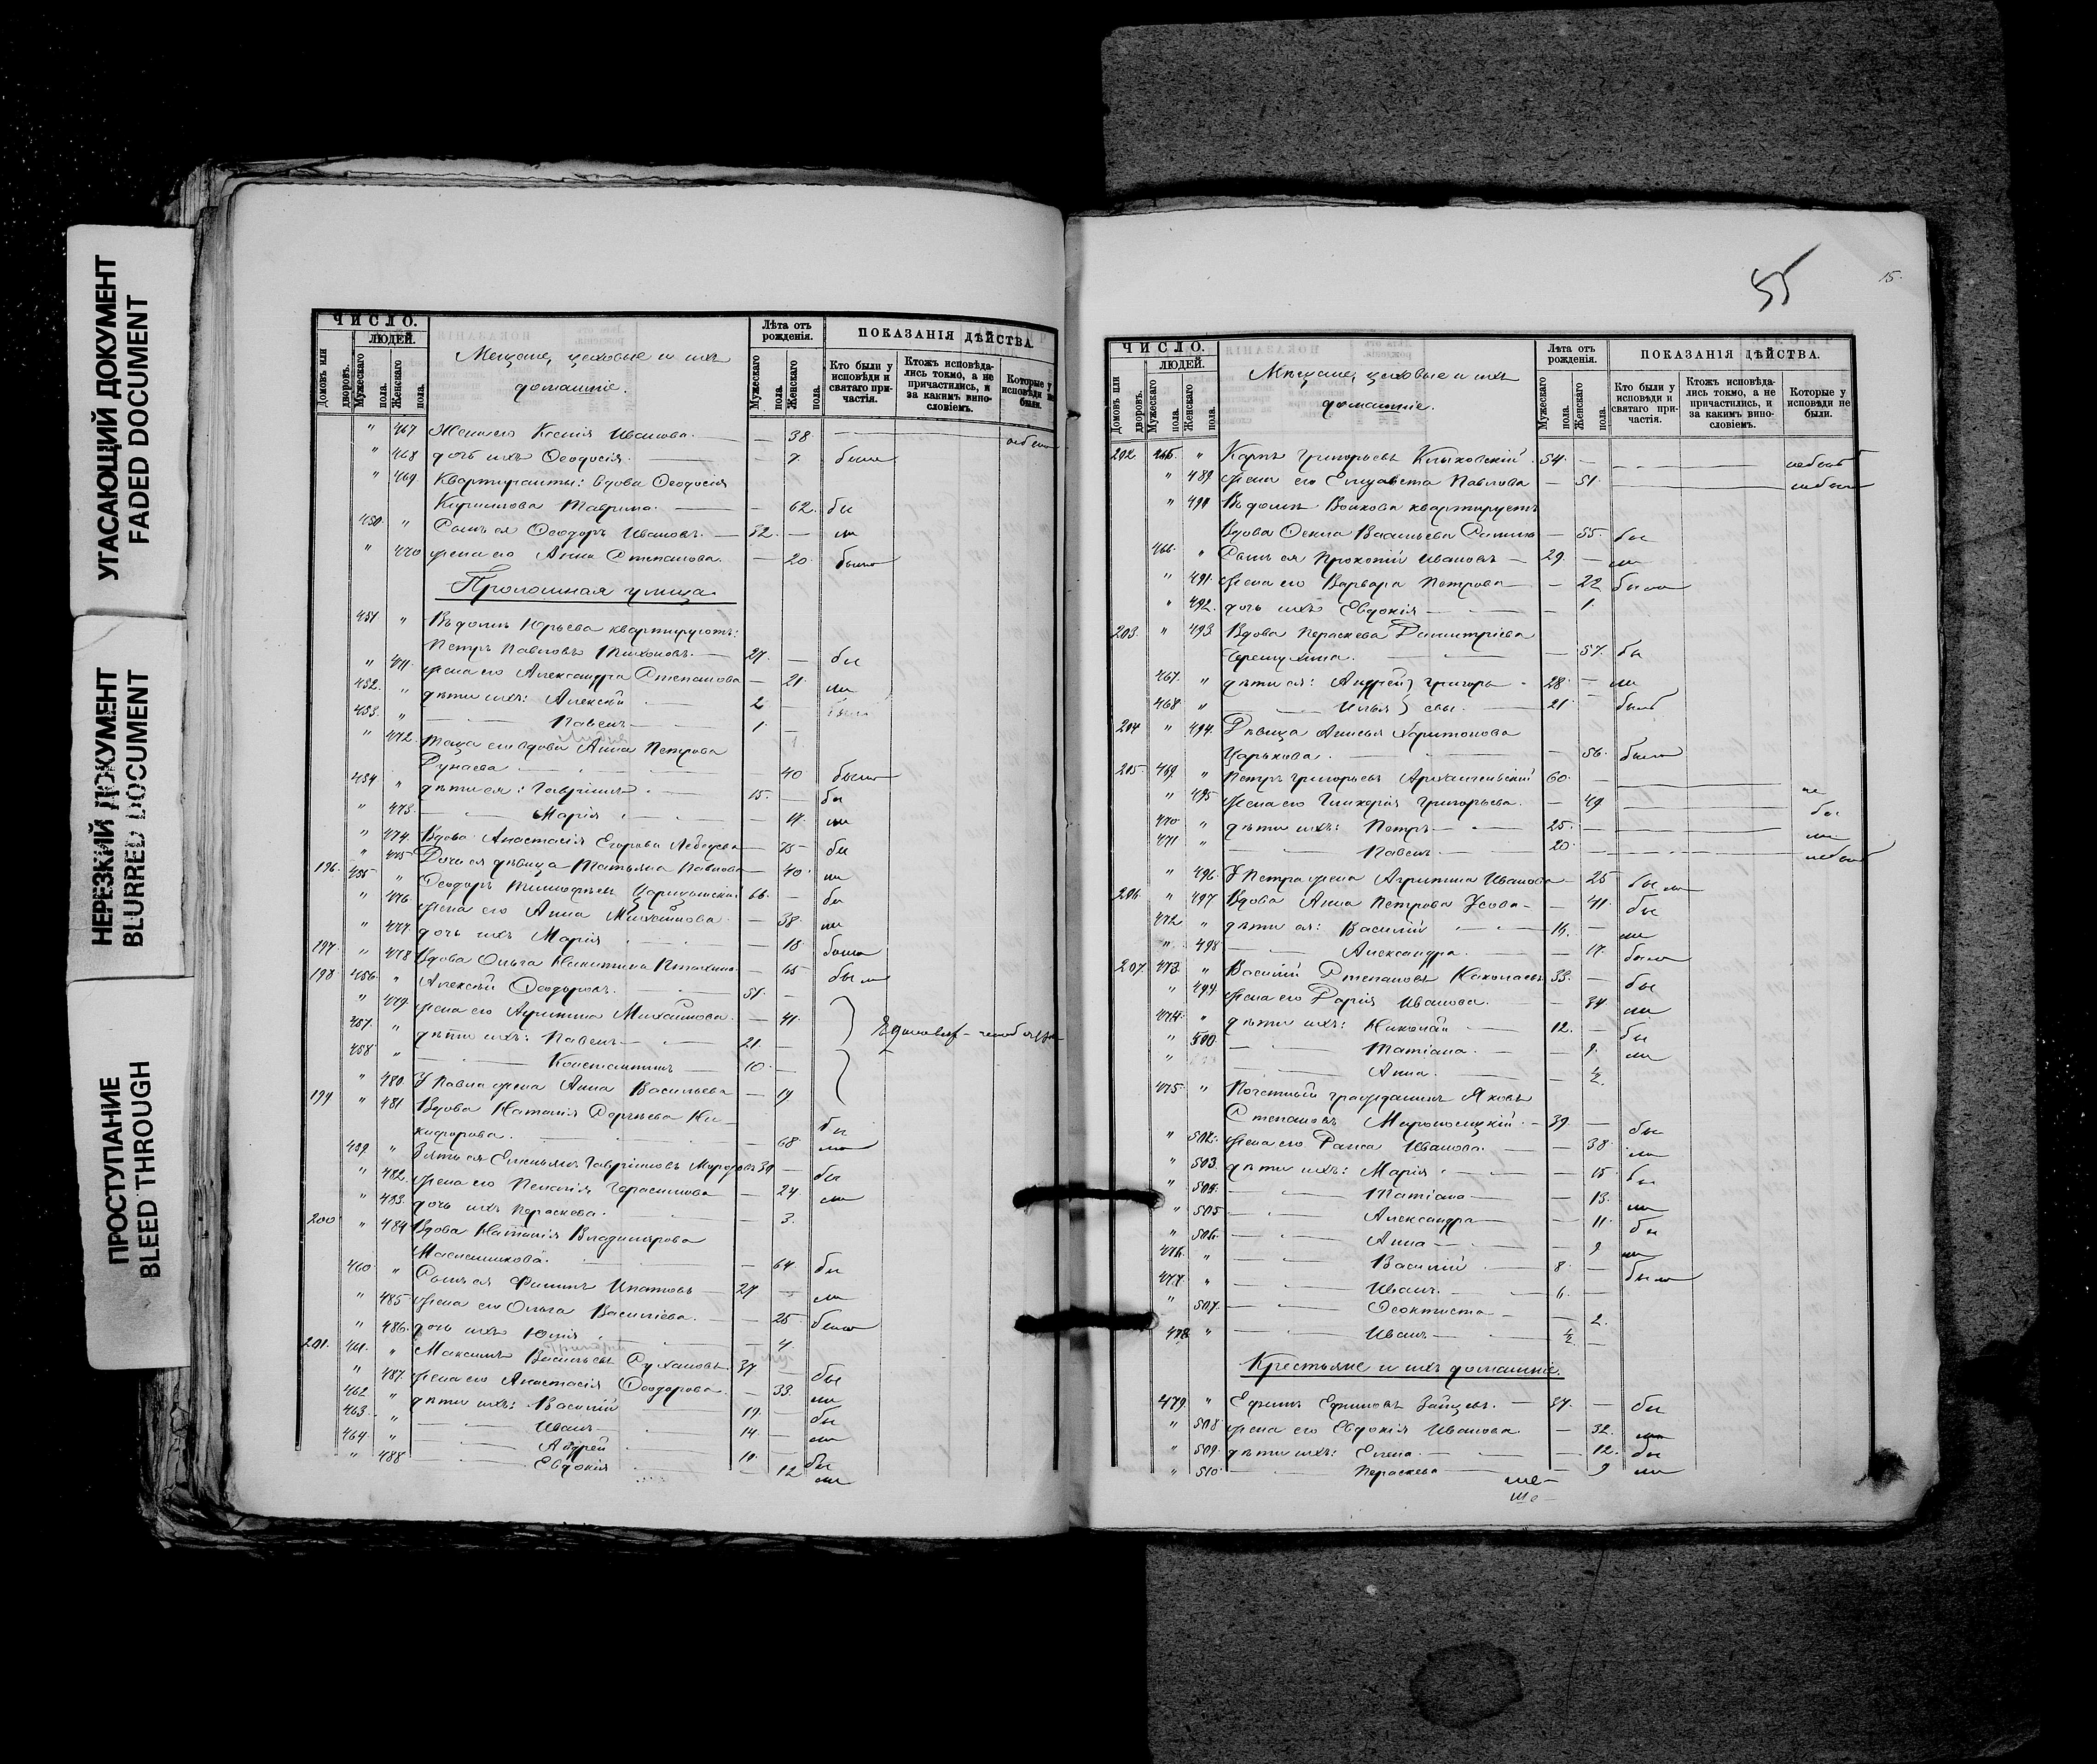 УГАСАЮЩИЙ ДОКУМЕНТ
FADED DOCUMENT
НЕРЕЗКИЙ ДОКУМЕНТ
BLURRED DOCUMENT
ПРОСТУПАНИЕ
BLEED THROUGH
ЧИСЛО.
ЛЮДЕЙ.
Домовъ или дворовъ.
Мужескаго пола.
Женскаго пола.
Мещане, цеховые и ихъ
домашніе.
Лѣта отъ рожденія.
Мужескаго пола.
Женскаго пола.
ПОКАЗАНІЯ ДѢЙСТВА.
Кто были у исповѣди и святаго причастія.
Ктожъ исповѣдались токмо, а не причастились, и за какимъ винословіемъ.
Которые у исповѣди не были.
" 467 Жена его Ксенія Иванова. — 38.
" 468 дочь ихъ Ѳеодосія. — 7. были
" 469 Квартиранты: вдова Ѳеодосія
— 62. бы
450. " Сынъ ея Ѳеодоръ Ивановъ. 32. — ли
" 470 жена его Анна Степанова. — 20. были
Проломная улица.
451 " Въ домѣ Юрьева квартируютъ:
Петръ Павловъ Тихоновъ. 27. — бы
" 471 жена его Александра Степанова — 21. ли
452. " дѣти ихъ: Алексѣй 2
453. " Павелъ 1. —
" 472. вдова Анна Петрова
Дунаева — 40 были
454 " дѣти ея: Гавріилъ 15. — бы
" 473. Марія — 11. ли
" 474. Вдова Анастасія Егорова Лебедева — 75 бы
" 475 Дочь ея дѣвица Татьяна Павлова — 40. ли
196. 455 " Ѳеодоръ Тимофеевъ 66. — бы
" 476 жена его Анна Михайлова — 38. ли
" 477 дочь ихъ Марія — 18 были
197 " 478 Вдова Ольга Никитина — 65 были
198 456. " Алексѣй Ѳеодоровъ. 51. —
" 479. жена его Агрипина Михайлова. — 41.
457. " дѣти ихъ: Павелъ 21. —
458 " Константинъ 10. —
" 480. У Павла жена Анна Васильева — 19.
199 " 481 Вдова Наталія Сергѣева Ни-
кифорова. — 68. были
459. " Зять ея Емельянъ Гавріиловъ 30 — бы
" 482. жена его Пелагія Герасимова — 24. ли
" 483. дочь ихъ Пераскева. — 3.
200 " 484 Вдова Наталія Владимірова
Масленникова. — 64. бы
460 " Сынъ ея Филиппъ Ипатовъ 27 — ли
" 485 жена его Ольга Василіева. — 25. были
" 486. дочь ихъ Юлія — 4.
201. 461. " Максимъ Васильевъ Сухановъ. 37 — бы
" 487. жена его Анастасія Ѳеодорова. — 33. ли
462 " дѣти ихъ: Василій 19. — бы
463. " Иванъ 14. — ли
464 " Андрей 10. — бы
" 488 Евдокія — 12 ли
55
15.
ЧИСЛО.
ЛЮДЕЙ.
Домовъ или дворовъ.
Мужескаго пола.
Женскаго пола.
Мѣщане, цеховые и ихъ
домашніе.
Лѣта отъ рожденія.
Мужескаго пола.
Женскаго пола.
ПОКАЗАНІЯ ДѢЙСТВА.
Кто были у исповѣди и святаго причастія.
Ктожъ исповѣдались токмо, а не причастились, и за какимъ винословіемъ.
Которые у исповѣди не были.
202 465. " Карпъ Григорьевъ 54. — небылъ
" 489 жена его Елизавета Павлова — 51. небыла
" 490 Въ домѣ Волкова квартируетъ
Вдова Васильева — 55. бы
466. " Сынъ ея Прокопій Ивановъ 29. — ли
" 491. жена его Варвара Петрова — 22 были
" 492. дочь ихъ Евдокія — 1.
203. " 493. Вдова Пераскева Димитріева
— 57. бы
467. " дѣти ея: Андрей Григорь 28. — ли
468. " Илья 21. былъ
204 " 494. Дѣвица Харитонова
Царькова. — 56. была
205. 469. " Петръ Григорьевъ Архангельскій 60. — не
" 495 жена его Гликерія Григорьева. — 49. бы
470 " дѣти ихъ: Петръ 25. — ли
471 " Павелъ 20. — небылъ
" 496 У Петра жена Агрипина Иванова — 25 были
206. " 497 Вдова Анна Петрова Усова — 41. бы
472 " дѣти ея: Василій 14. — ли
" 498 Александра. — 17. были
207. 473. " Василій Степановъ 33. — бы
" 499 жена его Дарія Иванова. — 34 ли
474. " дѣти ихъ: Николай 12. — бы
" 500 Татіана. — 9. ли
" Анна. — ½
475. " Почетный гражданинъ Яковъ
Степановъ 39. — бы
" 502. жена его Раиса Иванова. — 38 ли
" 503. дѣти ихъ: Марія — 15 бы
" 504. Татіана — 13. ли
" 505 Александра — 11. бы
" 506. Анна — 9 ли
476. " Василій 8. — были
477. " Иванъ. 6. —
" 507. Ѳеоктиста — 2.
478 " Иванъ ½ —
Крестьяне и ихъ домашніе.
479. " Ефимъ Ефимовъ Зайцевъ. 37. — бы
" 508 жена его Евдокія Иванова. — 32. ли
" 509. дѣти ихъ: Елена. — 12. бы
" 510 Пераскева — 9 ли